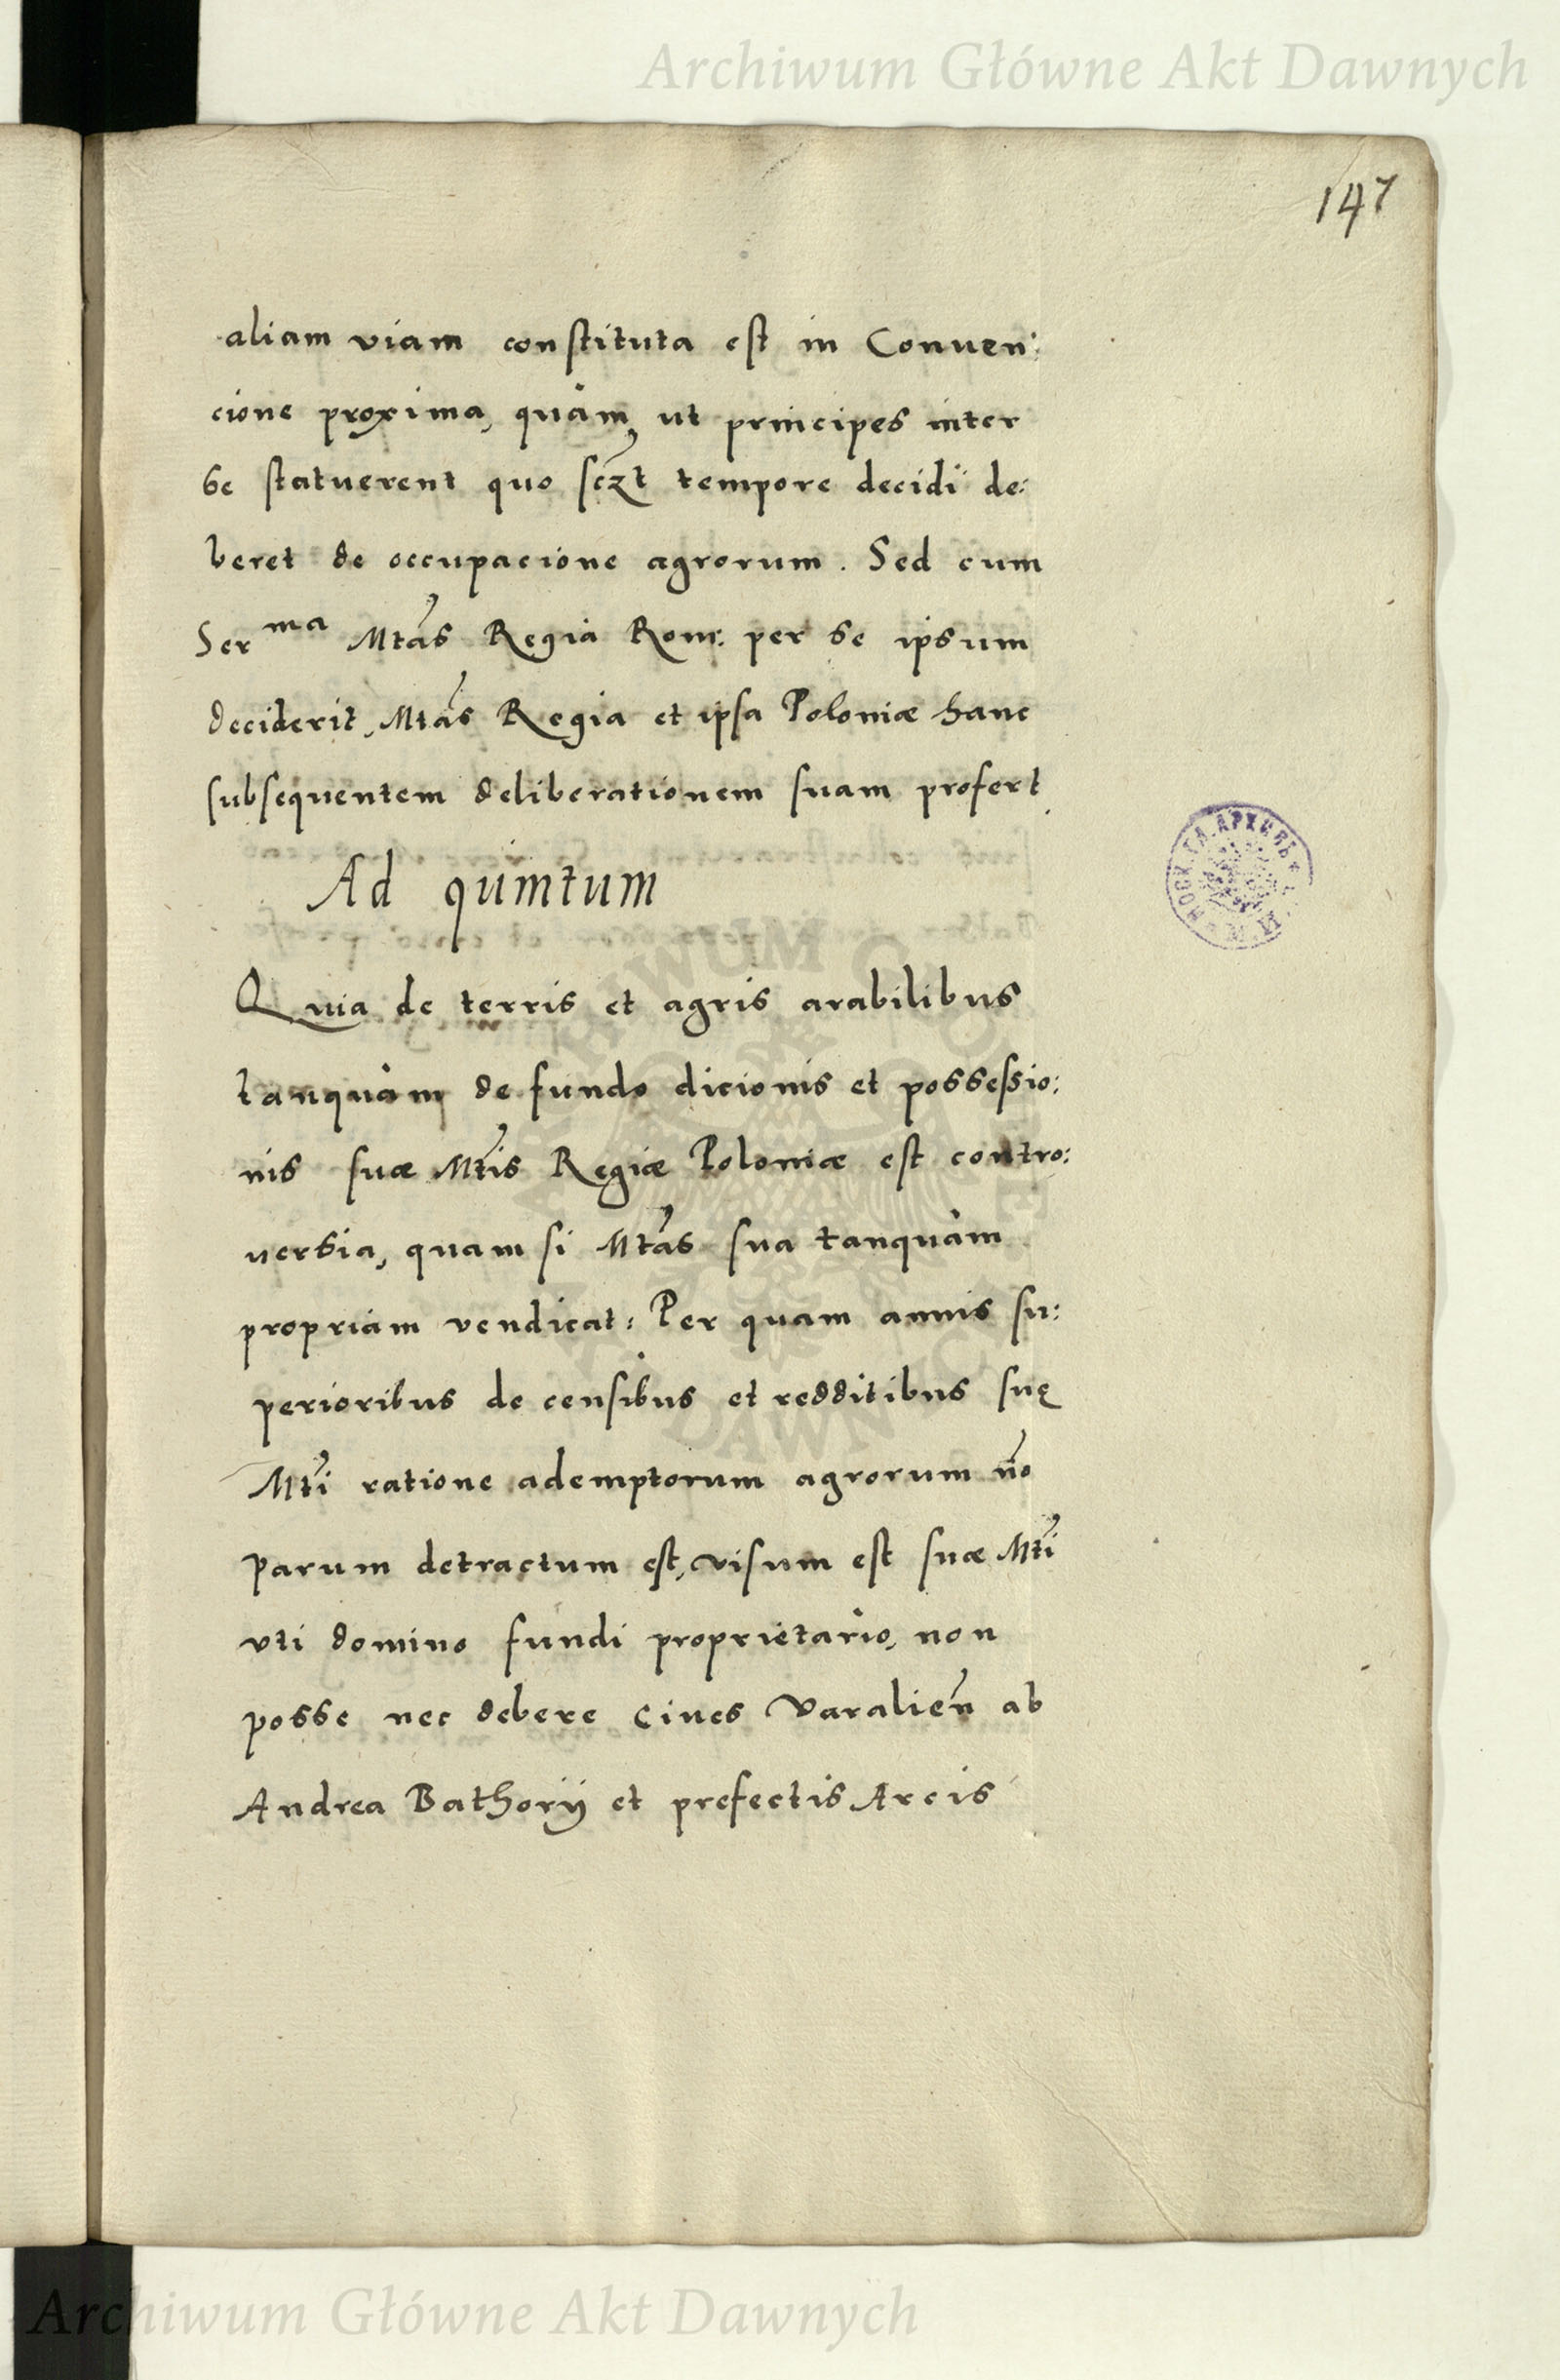 Archiwum Główne Akt Dawnych
147
aliam viam constituta est in Conuen:
cione proxima, quàm, ut principes inter
se statuerent quo sczt tempore decidi de:
beret de occupacione agrorum. Sed cum
Ser ma Mtas Regia Rom: per se ipsum
deciderit, Mtas Regia et ipsa Poloniæ hanc
subsequentem deliberationem suam profert.
Ad quintum
Quia de terris et agris arabilibus
tanquàm de fundo dicionis et possessio:
nis suæ Mtis Regiæ Poloniæ est contro:
uersia, quam si Mtas sua tanquàm
propriam vendicat: Per quam annis su:
perioribus de censibus et redditibus suę
Mti ratione ademptorum agrorum no
parum detractum est, visum est suæ Mti
vti domino fundi proprietario, non
posse nec debere ciues Varalien ab
Andrea Bathorij et prefectis Arcis
Archiwum Główne Akt Dawnych